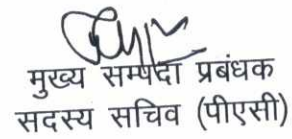 मुख्य सम्पदा प्रबंधक
सदस्य सचिव (पीएसी)